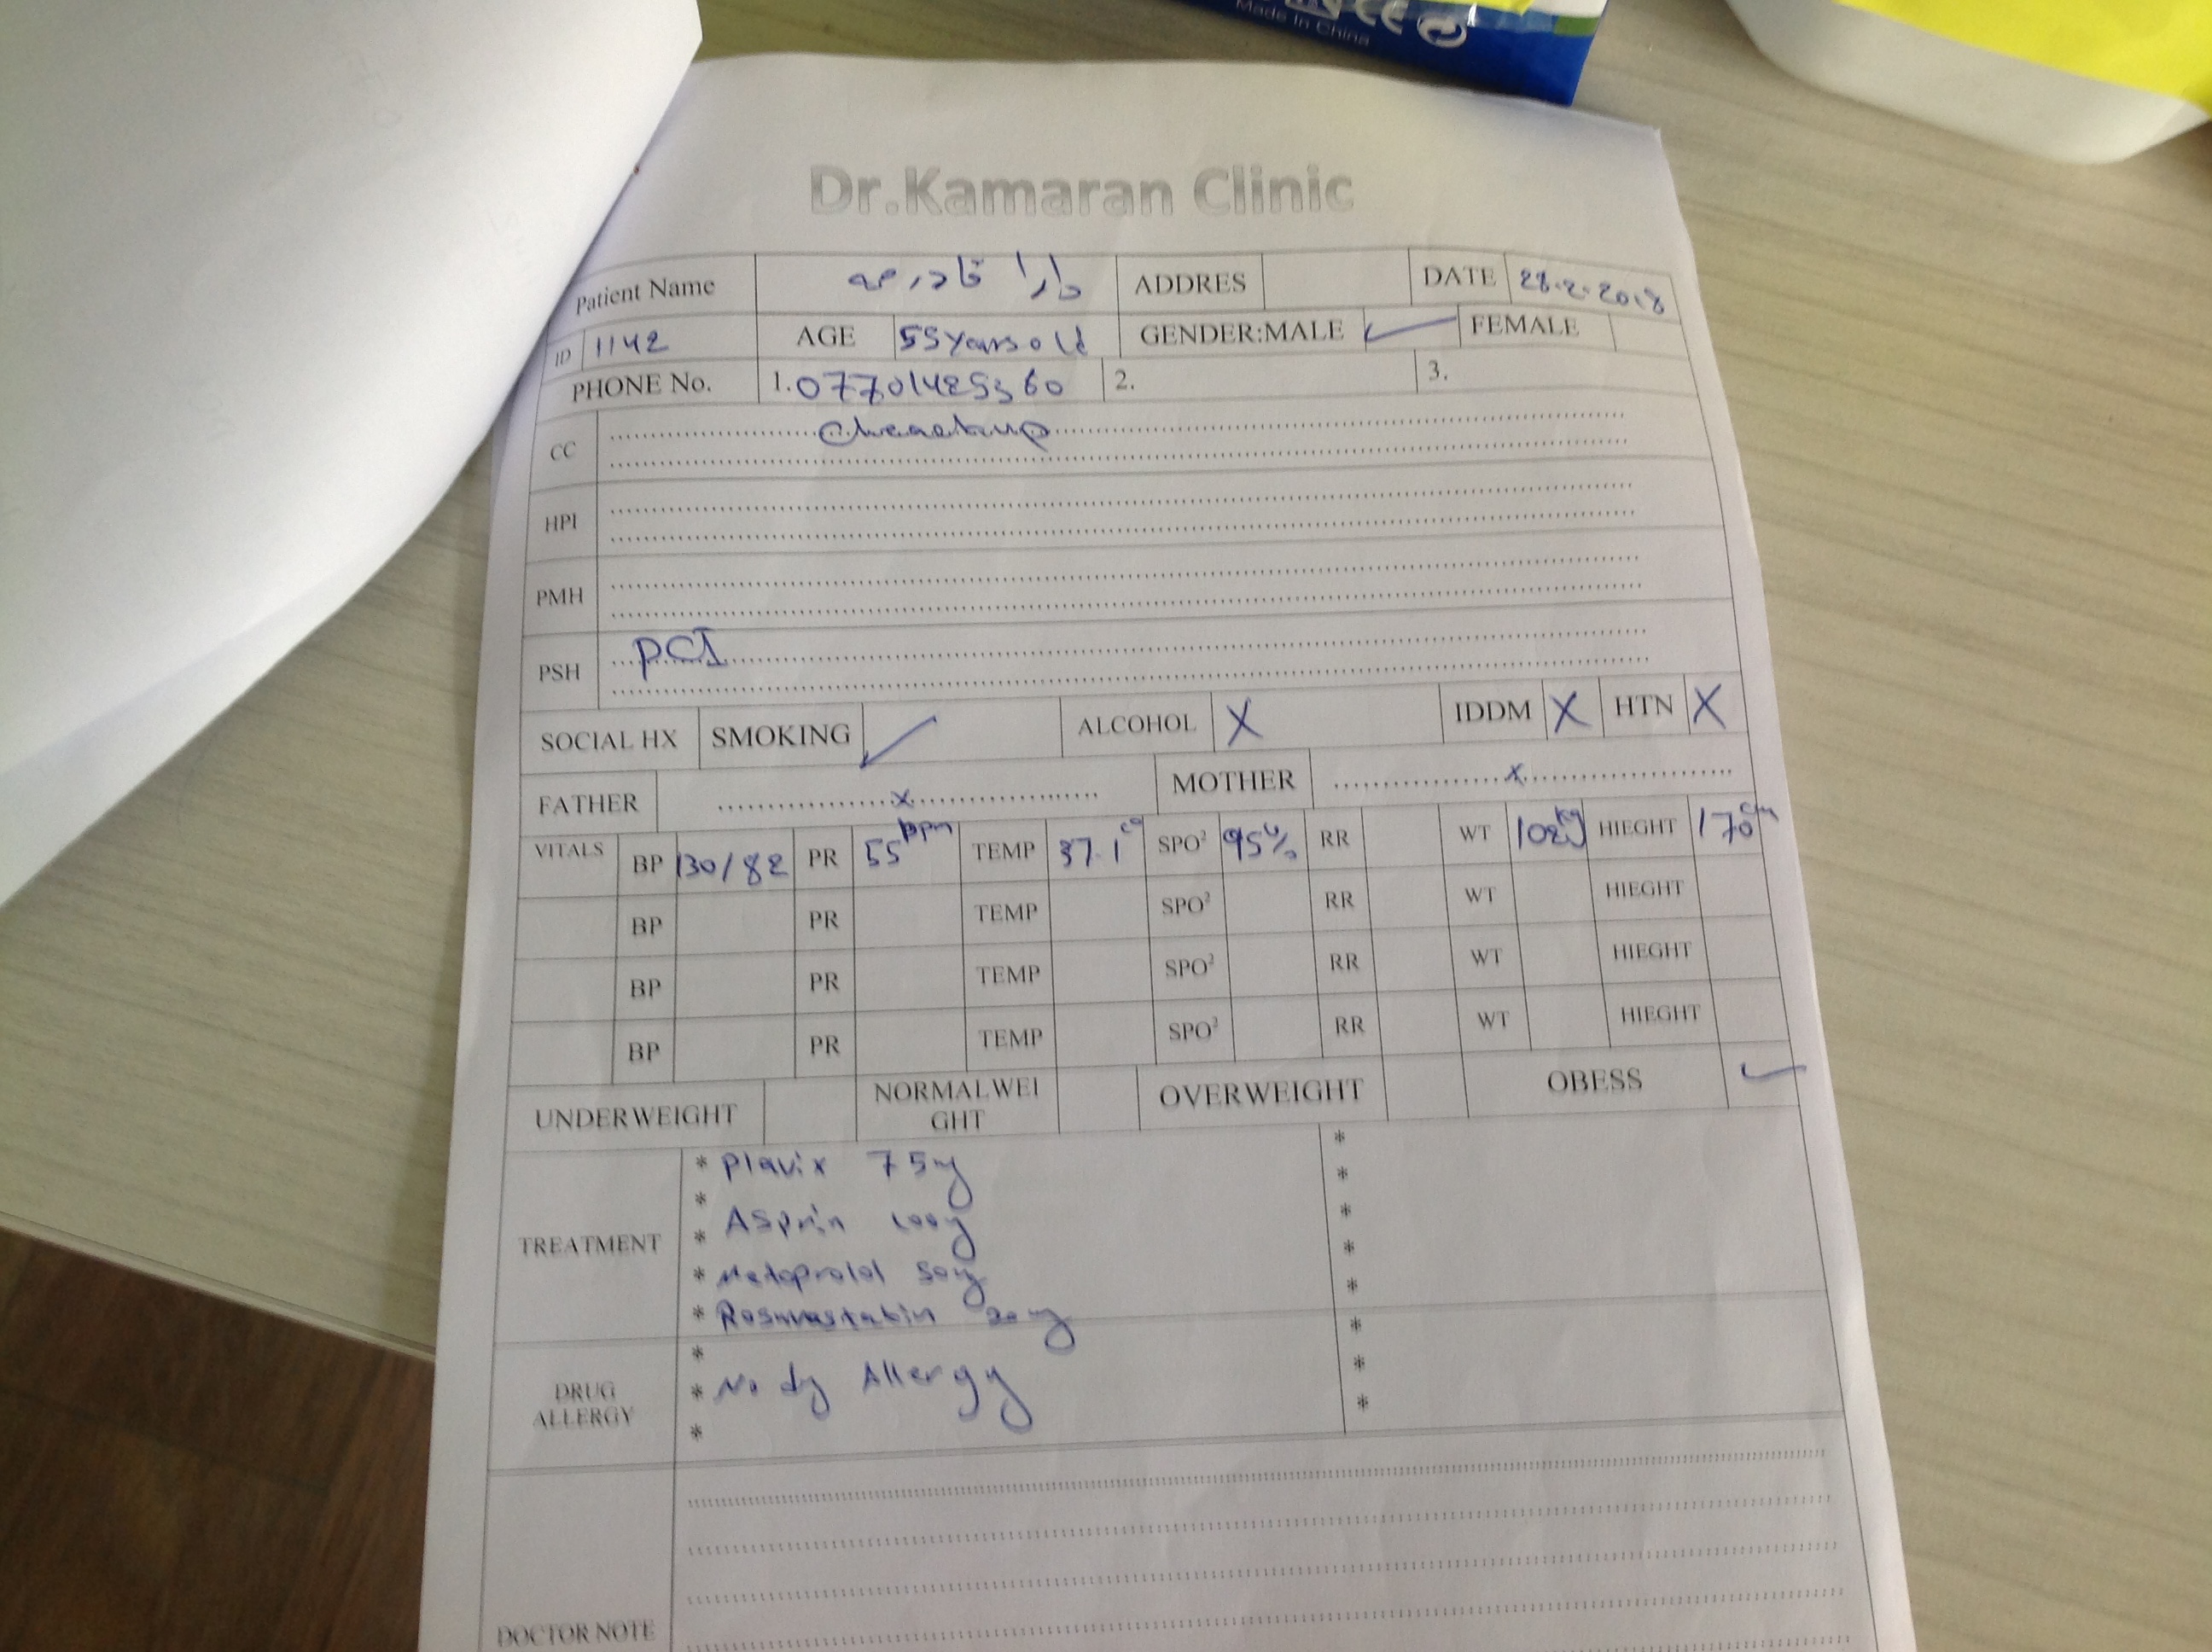 Made in China
Dr.Kamaran Clinic
Patient Name دارا قادر حمه ADDRES DATE 28.2.2018
ID 1142 AGE 55 Years old GENDER:MALE ✓ FEMALE
PHONE No. 1. 07701425360 2. 3.
CC Checkup
HPI
PMH
PSH PCI
SOCIAL HX SMOKING ✓ ALCOHOL X IDDM X HTN X
FATHER x MOTHER x
VITALS BP 130/82 PR 55 bpm TEMP 37.1 c° SPO² 95% RR WT 102 kg HIEGHT 170 cm
BP PR TEMP SPO² RR WT HIEGHT
BP PR TEMP SPO² RR WT HIEGHT
BP PR TEMP SPO² RR WT HIEGHT
UNDERWEIGHT NORMALWEI
GHT OVERWEIGHT OBESS ✓
TREATMENT
* Plavix 75mg
* Asprin 100mg
* Metoprolol 50mg
* Rosuvastatin 20mg
DRUG
ALLERGY
* No drug Allergy
DOCTOR NOTE